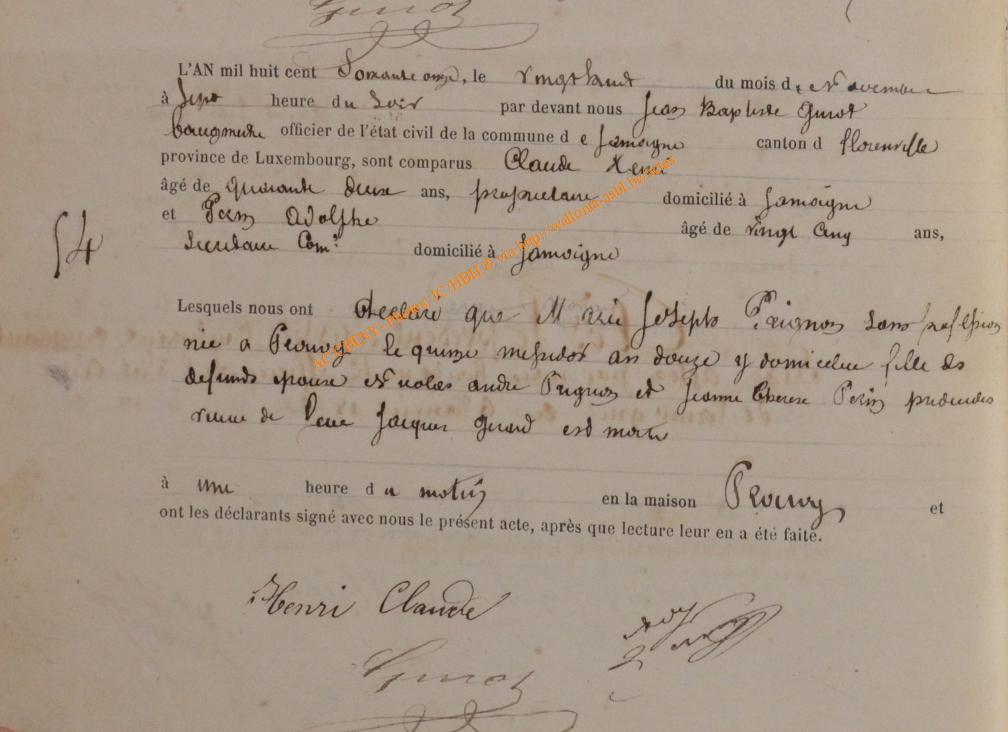 L'AN mil huit cent Soixante onze, le vingt huit du mois de Novembre
à Sept heure du Soir par devant nous Jean Baptiste Guiot
bourgmestre officier de l'état civil de la commune d e Jamoigne canton d florenville
province de Luxembourg, sont comparus Claude Henri
âgé de quarante deux ans, propriétaire domicilié à Jamoigne
et Perin Adolphe âgé de vingt cinq ans,
Secrétaire Com.l domicilié à Jamoigne
54
Lesquels nous ont déclaré que Marie Joseph Prignon sans profession
née à Prouvy le quinze messidor an douze y domiciliée fille des
défunts époux Nicolas andré Prignon et Jeanne therese Perin
veuve de Jacques Gerard est morte
à une heure d u matin en la maison Prouvy et
ont les déclarants signé avec nous le présent acte, après que lecture leur en a été faite.
Henri Claude
Guiot